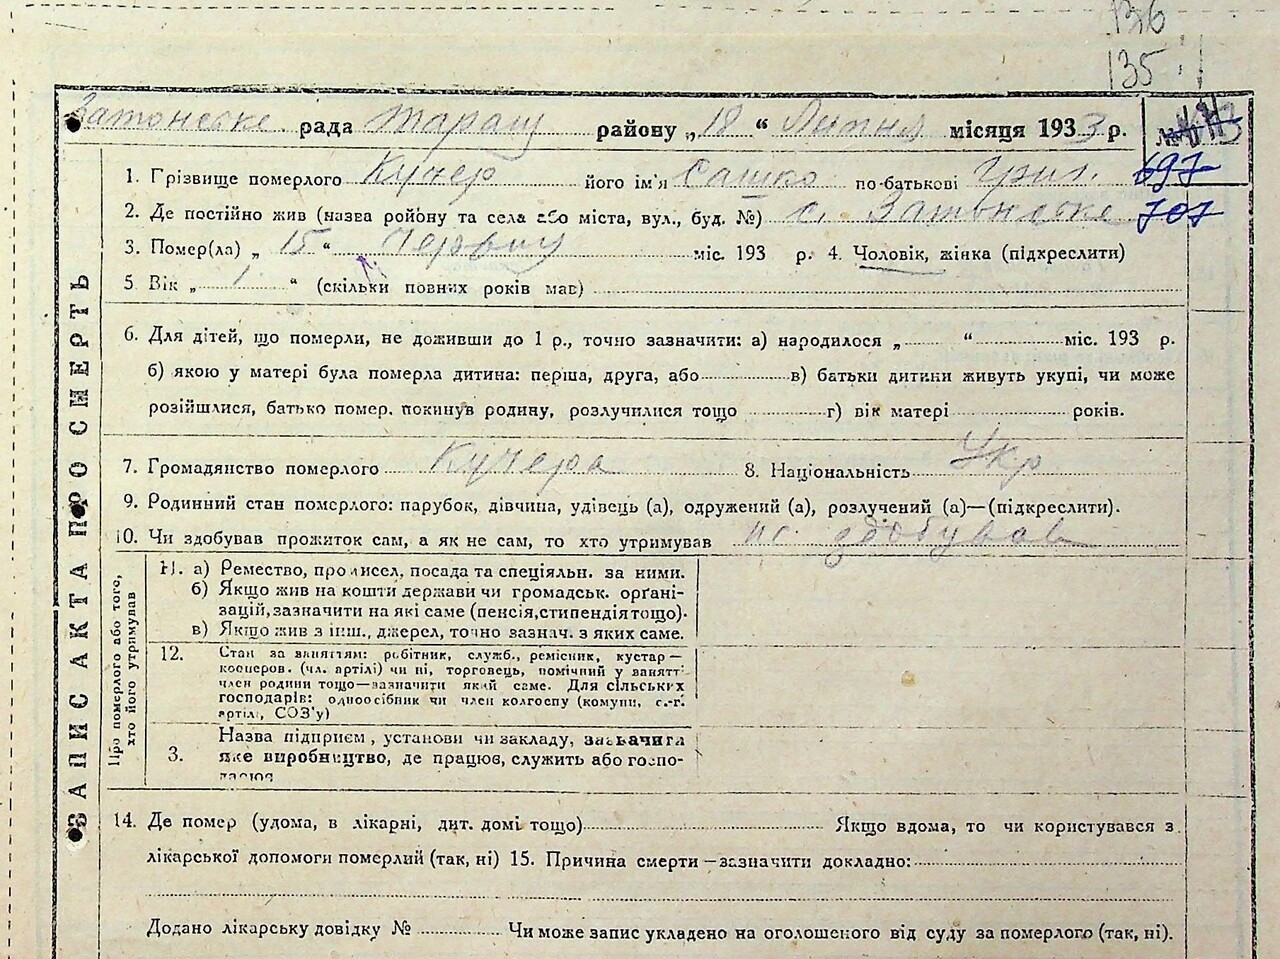 136
135
Затонське рада Таращ району „18“ Липня місяця 1933 р.
697
707
1. Грізвище померлого Кучер його ім'я Сашко по-батькові Григ.
2. Де постійно жив (назва ройону та села або міста, вул., буд. №) с. Затонське
3. Помер(ла) „15“ Червня міс. 193 р. 4. Чоловік, жінка (підхреслити)
5. Вік „1“ (скільки повних років мав)
6. Для дітей, що померли, не доживши до 1 р., точно зазначити: а) народилося „ “ міс. 193 р.
б) якою у матері була померла дитина: перша, друга, або в) батьки дитини живуть укупі, чи може
розійшлися, батько помер. покинув родину, розлучилися тощо г) вік матері років.
7. Громадянство померлого Кучера 8. Національність Укр
9. Родинний стан померлого: парубок, дівчина, удівець (а), одружений (а), розлучений (а)—(підкреслити).
10. Чи здобував прожиток сам, а як не сам, то хто утримував не здобував
ЗАПИС АКТА ПРО СМЕРТЬ
Про померлого або того,
хто його утримував
11. а) Ремество, промисел, посада та спеціяльн. за ними.
б) Якщо жив на кошти держави чи громадськ. орґані-
зацій, зазначити на які саме (пенсія, стипендія тощо).
в) Якщо жив з інш., джерел, точно зазнач. з яких саме.
12. Стан за заняттям: робітник, служб., ремісник, кустар—
кооперов. (чл. артілі) чи ні, торговець, помічний у занятт
член родини тощо—зазначити який саме. Для сільських
господарів: одноосібник чи член колгоспу (комуни, с.-г.
артілі, СОЗ'у)
Назва підприєм, установи чи закладу, зазначити
3. яке виробництво, де працює, служить або госпо-
дарює
14. Де помер (удома, в лікарні, дит. домі тощо) Якщо вдома, то чи користувався з
лікарської допомоги померлий (так, ні) 15. Причина смерти—зазначити докладно:
Додано лікарську довідку № Чи може запис укладено на оголошеного від суду за померлого (так, ні).